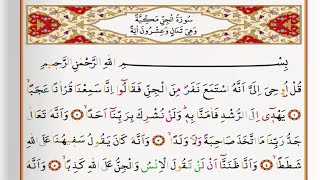 سُورَةُ الْجِنِّ مَكِّيَّةٌ
وَهِيَ ثَمَانٍ وَعِشْرُونَ اٰيَةً
بِسْمِ اللهِ الرَّحْمٰنِ الرَّحِيمِ
قُلْ اُوحِيَ اِلَيَّ اَنَّهُ اسْتَمَعَ نَفَرٌ مِنَ الْجِنِّ فَقَالُٓوا اِنَّا سَمِعْنَا قُرْاٰنًا عَجَبًاۙ
يَهْدِٓي اِلَى الرُّشْدِ فَاٰمَنَّا بِهٖۜ وَلَنْ نُشْرِكَ بِرَبِّنَٓا اَحَدًاۙ وَاَنَّهُ تَعَالٰى
جَدُّ رَبِّنَا مَا اتَّخَذَ صَاحِبَةً وَلَا وَلَدًاۙ وَاَنَّهُ كَانَ يَقُولُ سَفِيهُنَا عَلَى اللهِ
شَطَطًاۙ وَاَنَّا ظَنَنَّٓا اَنْ لَنْ تَقُولَ الْاِنْسُ وَالْجِنُّ عَلَى اللهِ كَذِبًاۙ وَاَنَّهُ